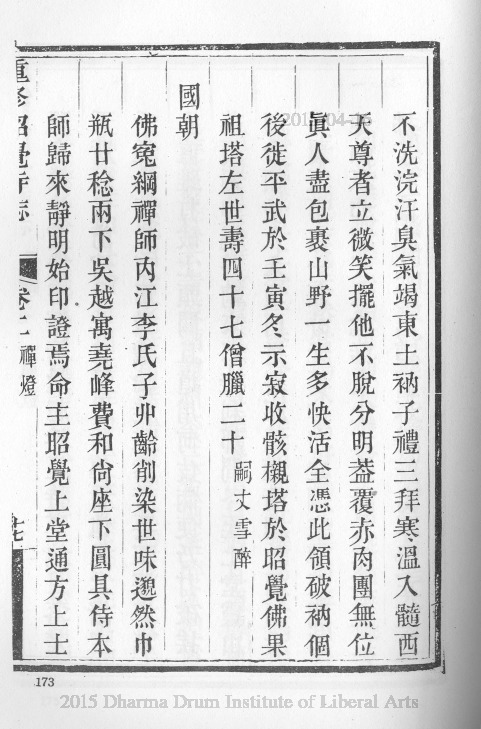 不洗浣汗臭氣竭東土衲子禮三拜寒溫入髓西
天尊者立微笑擺他不脫分明葢覆赤肉團無位
眞人盡包裹山野一生多快活全憑此領破衲個
後徙平武於壬寅冬示寂收骸櫬塔於昭覺佛果
祖塔左世壽四十七僧臘二十嗣丈雪醉
國朝
佛冤綱禪師內江李氏子丱齡削染世味邈然巾
瓶廿稔兩下吳越寓堯峰費和尙座下圓具侍本
師歸來靜明始印證焉命主昭覺上堂通方上士
重修昭覺寺志
卷十二 禪燈
七
173
2015 Dharma Drum Institute of Liberal Arts